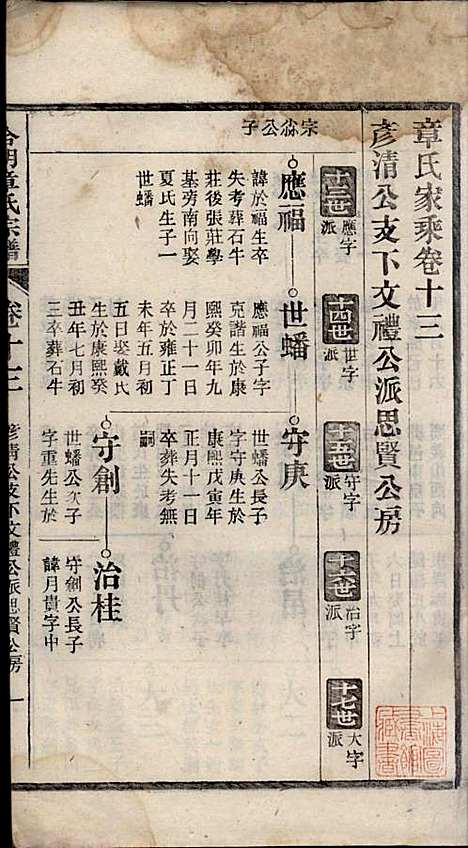 章氏家乘卷十三
彥清公支下文禮公派思賢公房
十三世
應字派
十四世
世字派
十五世
守字派
十六世
治字派
十七世
大字派
宗綵公子
應福
諱於福生卒
失考葬石牛
莊後張莊學
基旁南向娶
夏氏生子一
世蟠
世蟠
應福公子字
克諧生於康
熙癸卯年九
月二十一日
卒於雍正丁
未年五月初
五日娶戴氏
生於康熙癸
丑年七月初
三卒葬石牛
守庚
世蟠公長子
字守庚生於
康熙戊寅年
正月十一日
卒葬失考無
嗣
守創
世蟠公次子
字重先生於
治桂
守創公長子
諱月貴字中
章氏宗譜
卷十三
彥清公支下文禮公派思賢公房
一
上海圖書館藏書